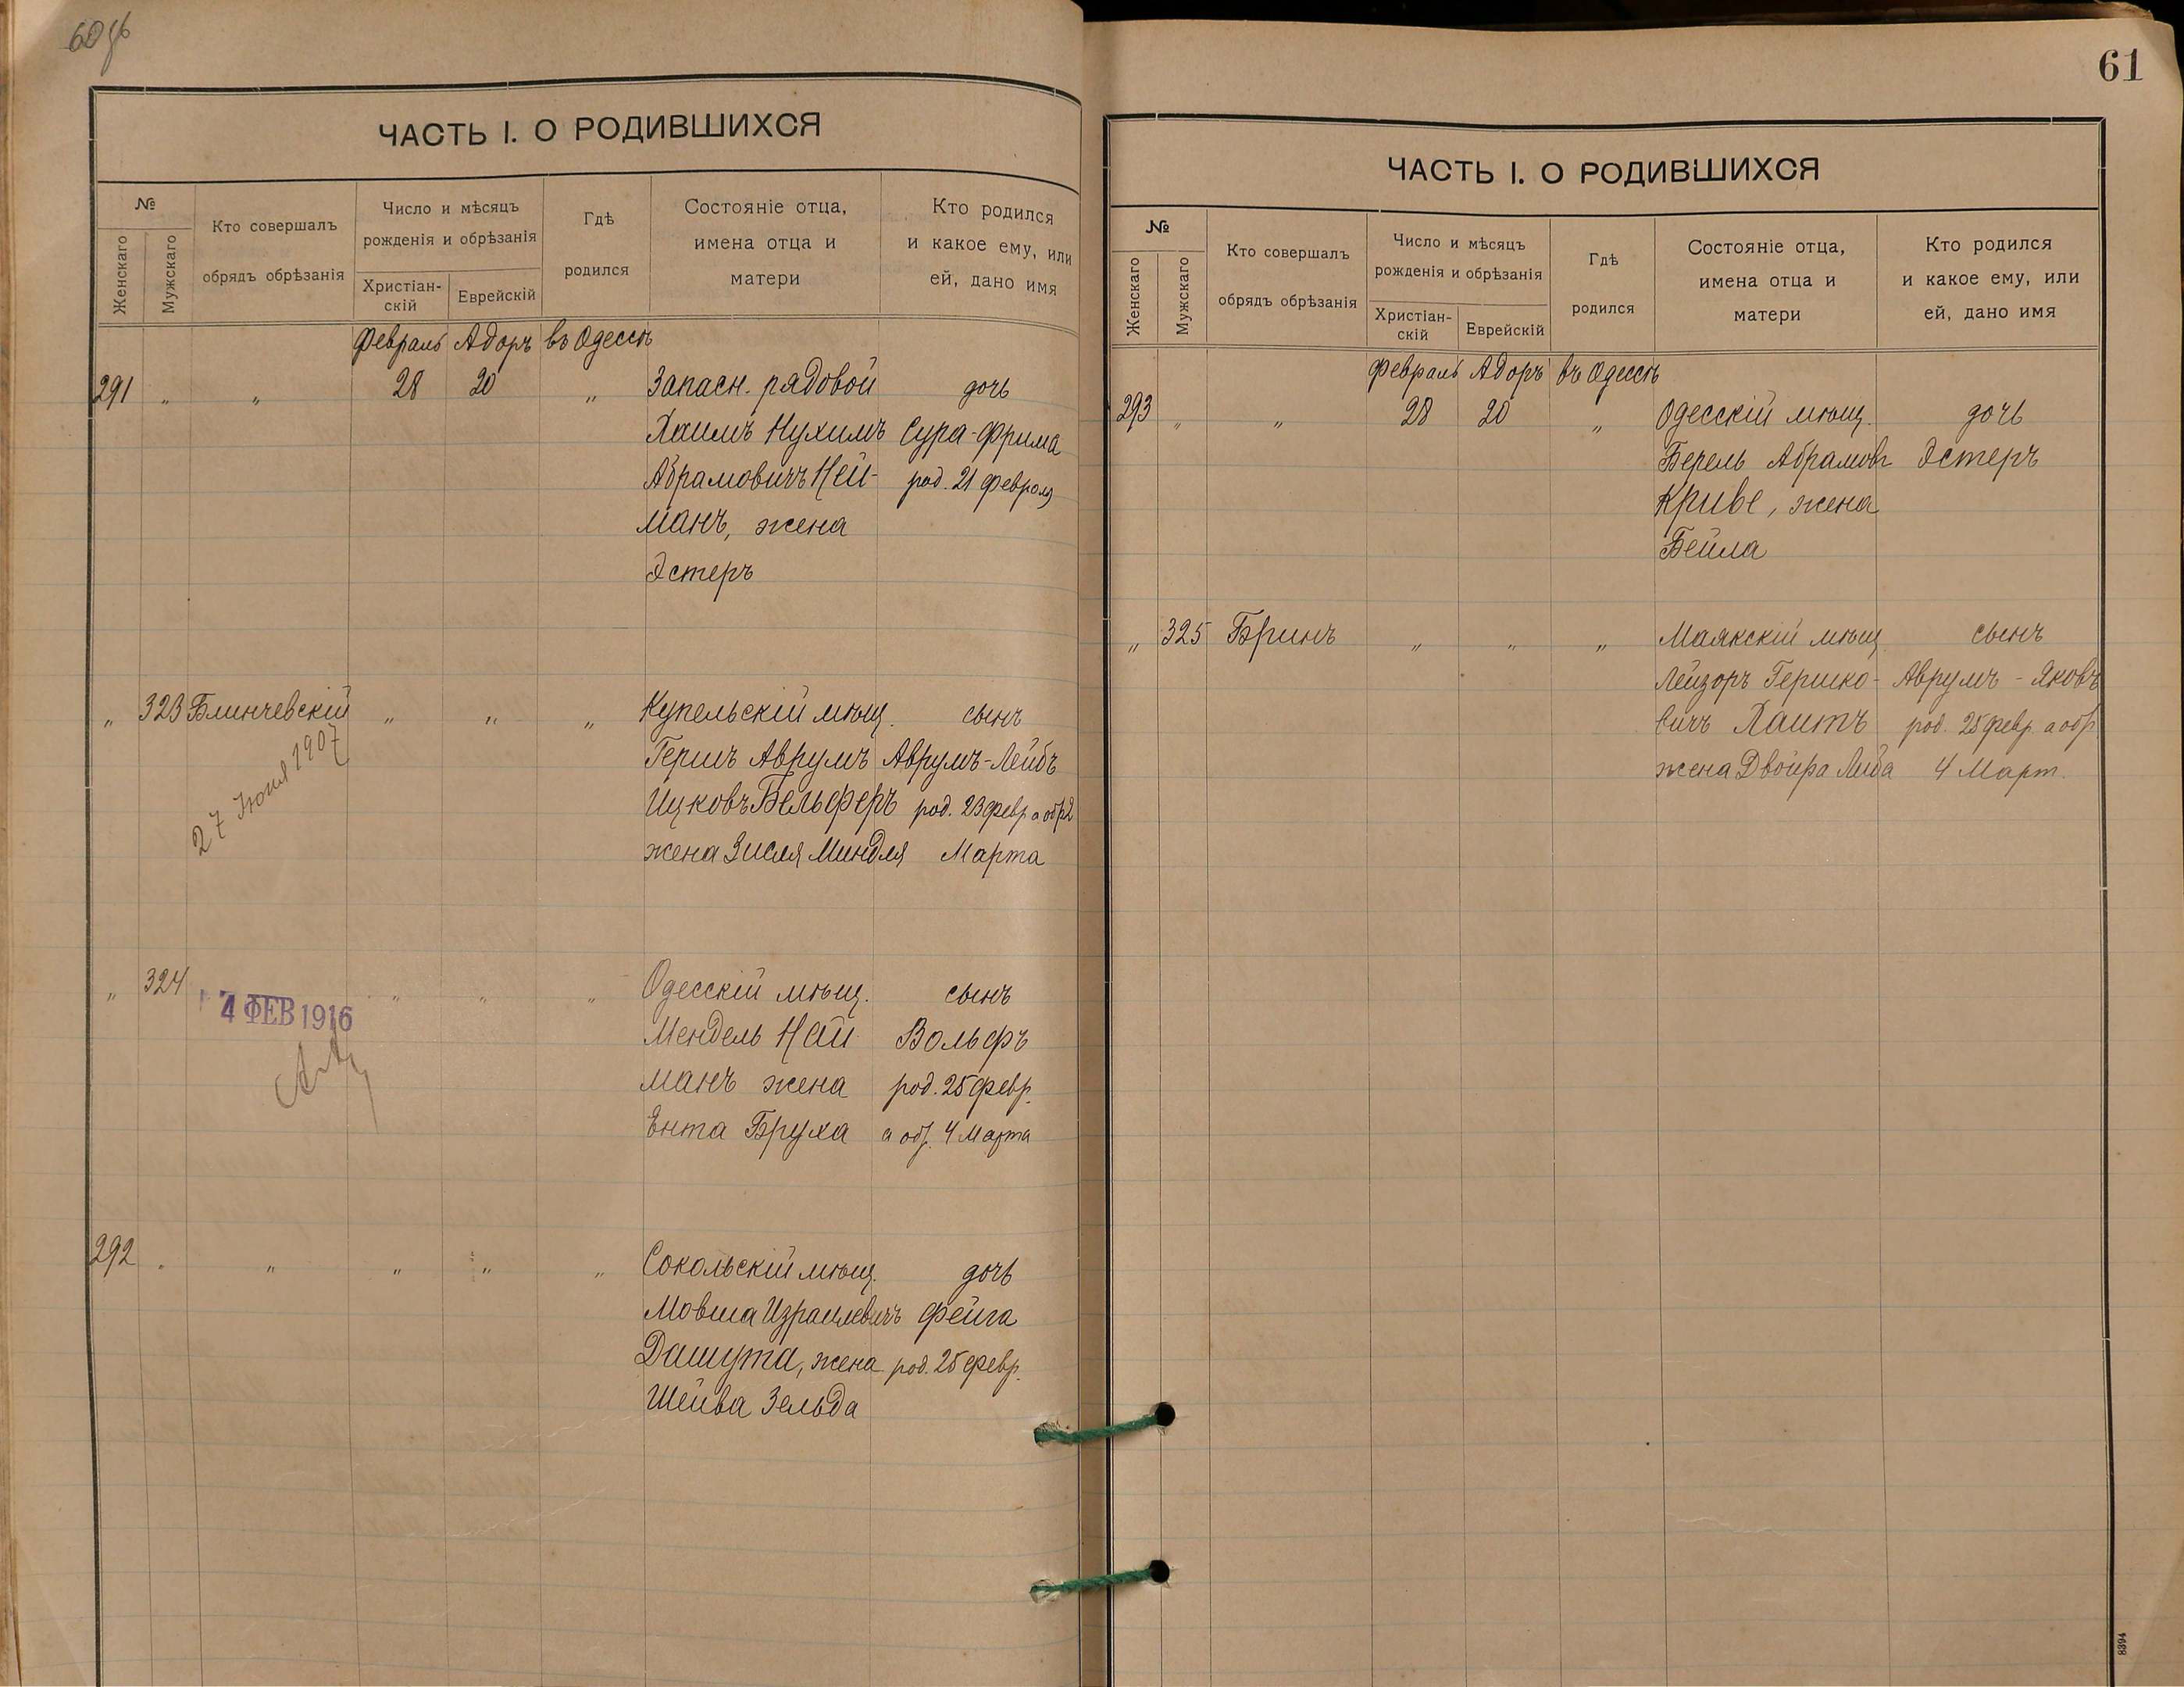 60 об
ЧАСТЬ I. О РОДИВШИХСЯ
№
Женскаго
Мужскаго
Кто совершалъ
обрядъ обрѣзанія
Число и мѣсяцъ
рожденія и обрѣзанія
Христіан-
скій
Еврейскій
Гдѣ
родился
Состояніе отца,
имена отца и
матери
Кто родился
и какое ему, или
ей, дано имя
Февраль Адоръ въ Одессѣ
291 „ „ 28 20 „ Запасн. рядовой дочь
Хаимъ Нухимъ Сура-Фрима
Абрамовичъ Ней- род. 21 февраля
манъ, жена
Эстеръ
„ 323 Блинчевскій „ „ „ Купельскій мѣщ. сынъ
Гершъ Аврумъ Аврумъ-Лейбъ
Ицковъ Бельферъ род. 23 февр а обр 2
жена Зисля Миндля Марта
27 Июня 1907
„ 324 „ „ „ Одесскій мѣщ. сынъ
4 ФЕВ 1916
Мендель Най Вольфъ
манъ жена род. 25 февр.
Ента Бруха а об. 4 Марта
292 „ „ „ „ „ Сокольскій мѣщ. дочь
Мовша Израилевичъ Фейга
Дашута, жена род. 25 февр.
Шейва Зельда
61
ЧАСТЬ I. О РОДИВШИХСЯ
№
Женскаго
Мужскаго
Кто совершалъ
обрядъ обрѣзанія
Число и мѣсяцъ
рожденія и обрѣзанія
Христіан-
скій
Еврейскій
Гдѣ
родился
Состояніе отца,
имена отца и
матери
Кто родился
и какое ему, или
ей, дано имя
Февраль Адоръ въ Одессѣ
293 „ „ 28 20 „ Одесскій мѣщ. дочь
Берель Абрамовъ Эстеръ
Криве, жена
Бейла
„ 325 Бринъ „ „ „ Маякскій мѣщ сынъ
Лейзоръ Гершко- Аврумъ - Яковъ
вичъ Хаитъ род. 25 февр. а обр
жена Двойра Либа 4 Март.
8394